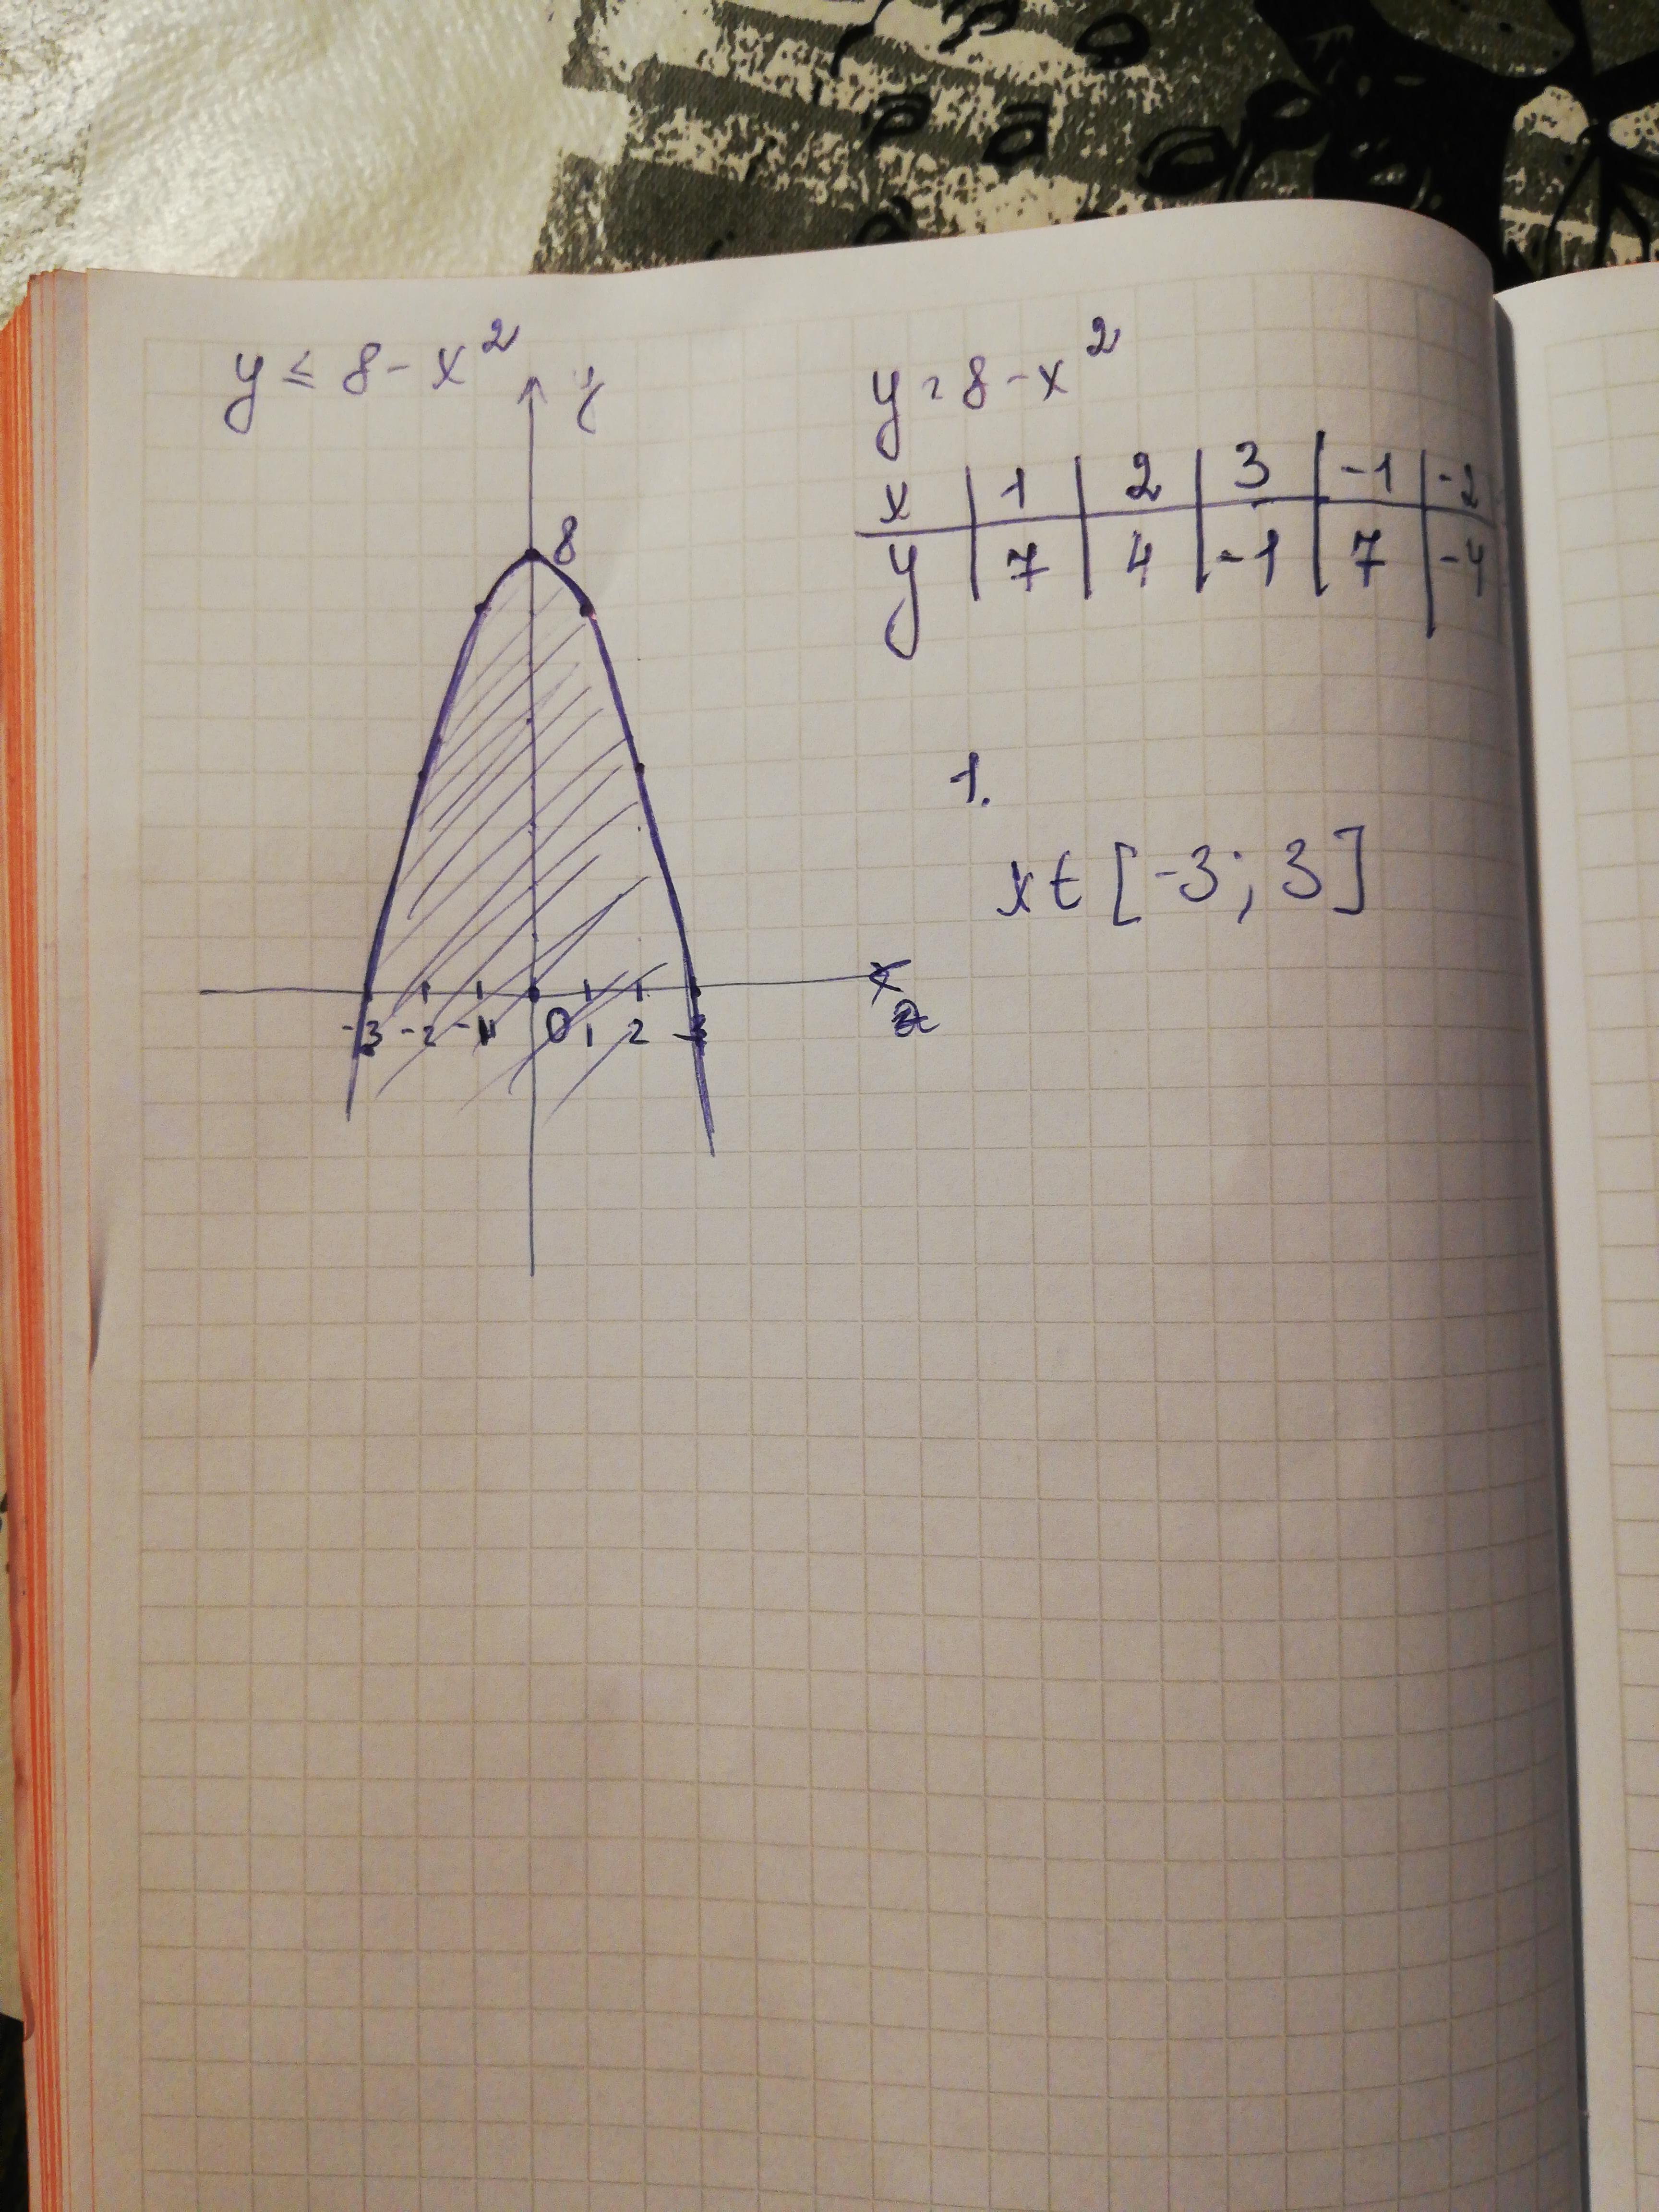 y ≤ 8 - x²
y
y = 8 - x²
x | 1 | 2 | 3 | -1 | -2
y | 7 | 4 | -1 | 7 | -4
8
1.
x ∈ [-3; 3]
x
-3 -2 -1 0 1 2 3